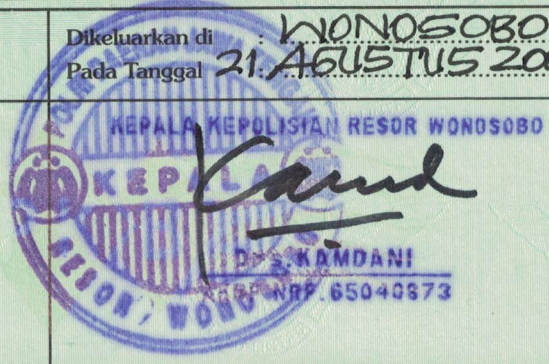 Dikeluarkan di : WONOSOBO
Pada Tanggal 21 AGUSTUS 20
KEPALA KEPOLISIAN RESOR WONOSOBO
KEPALA
RESOR, WONO
Drs. KAMDANI
NRP. 65040873